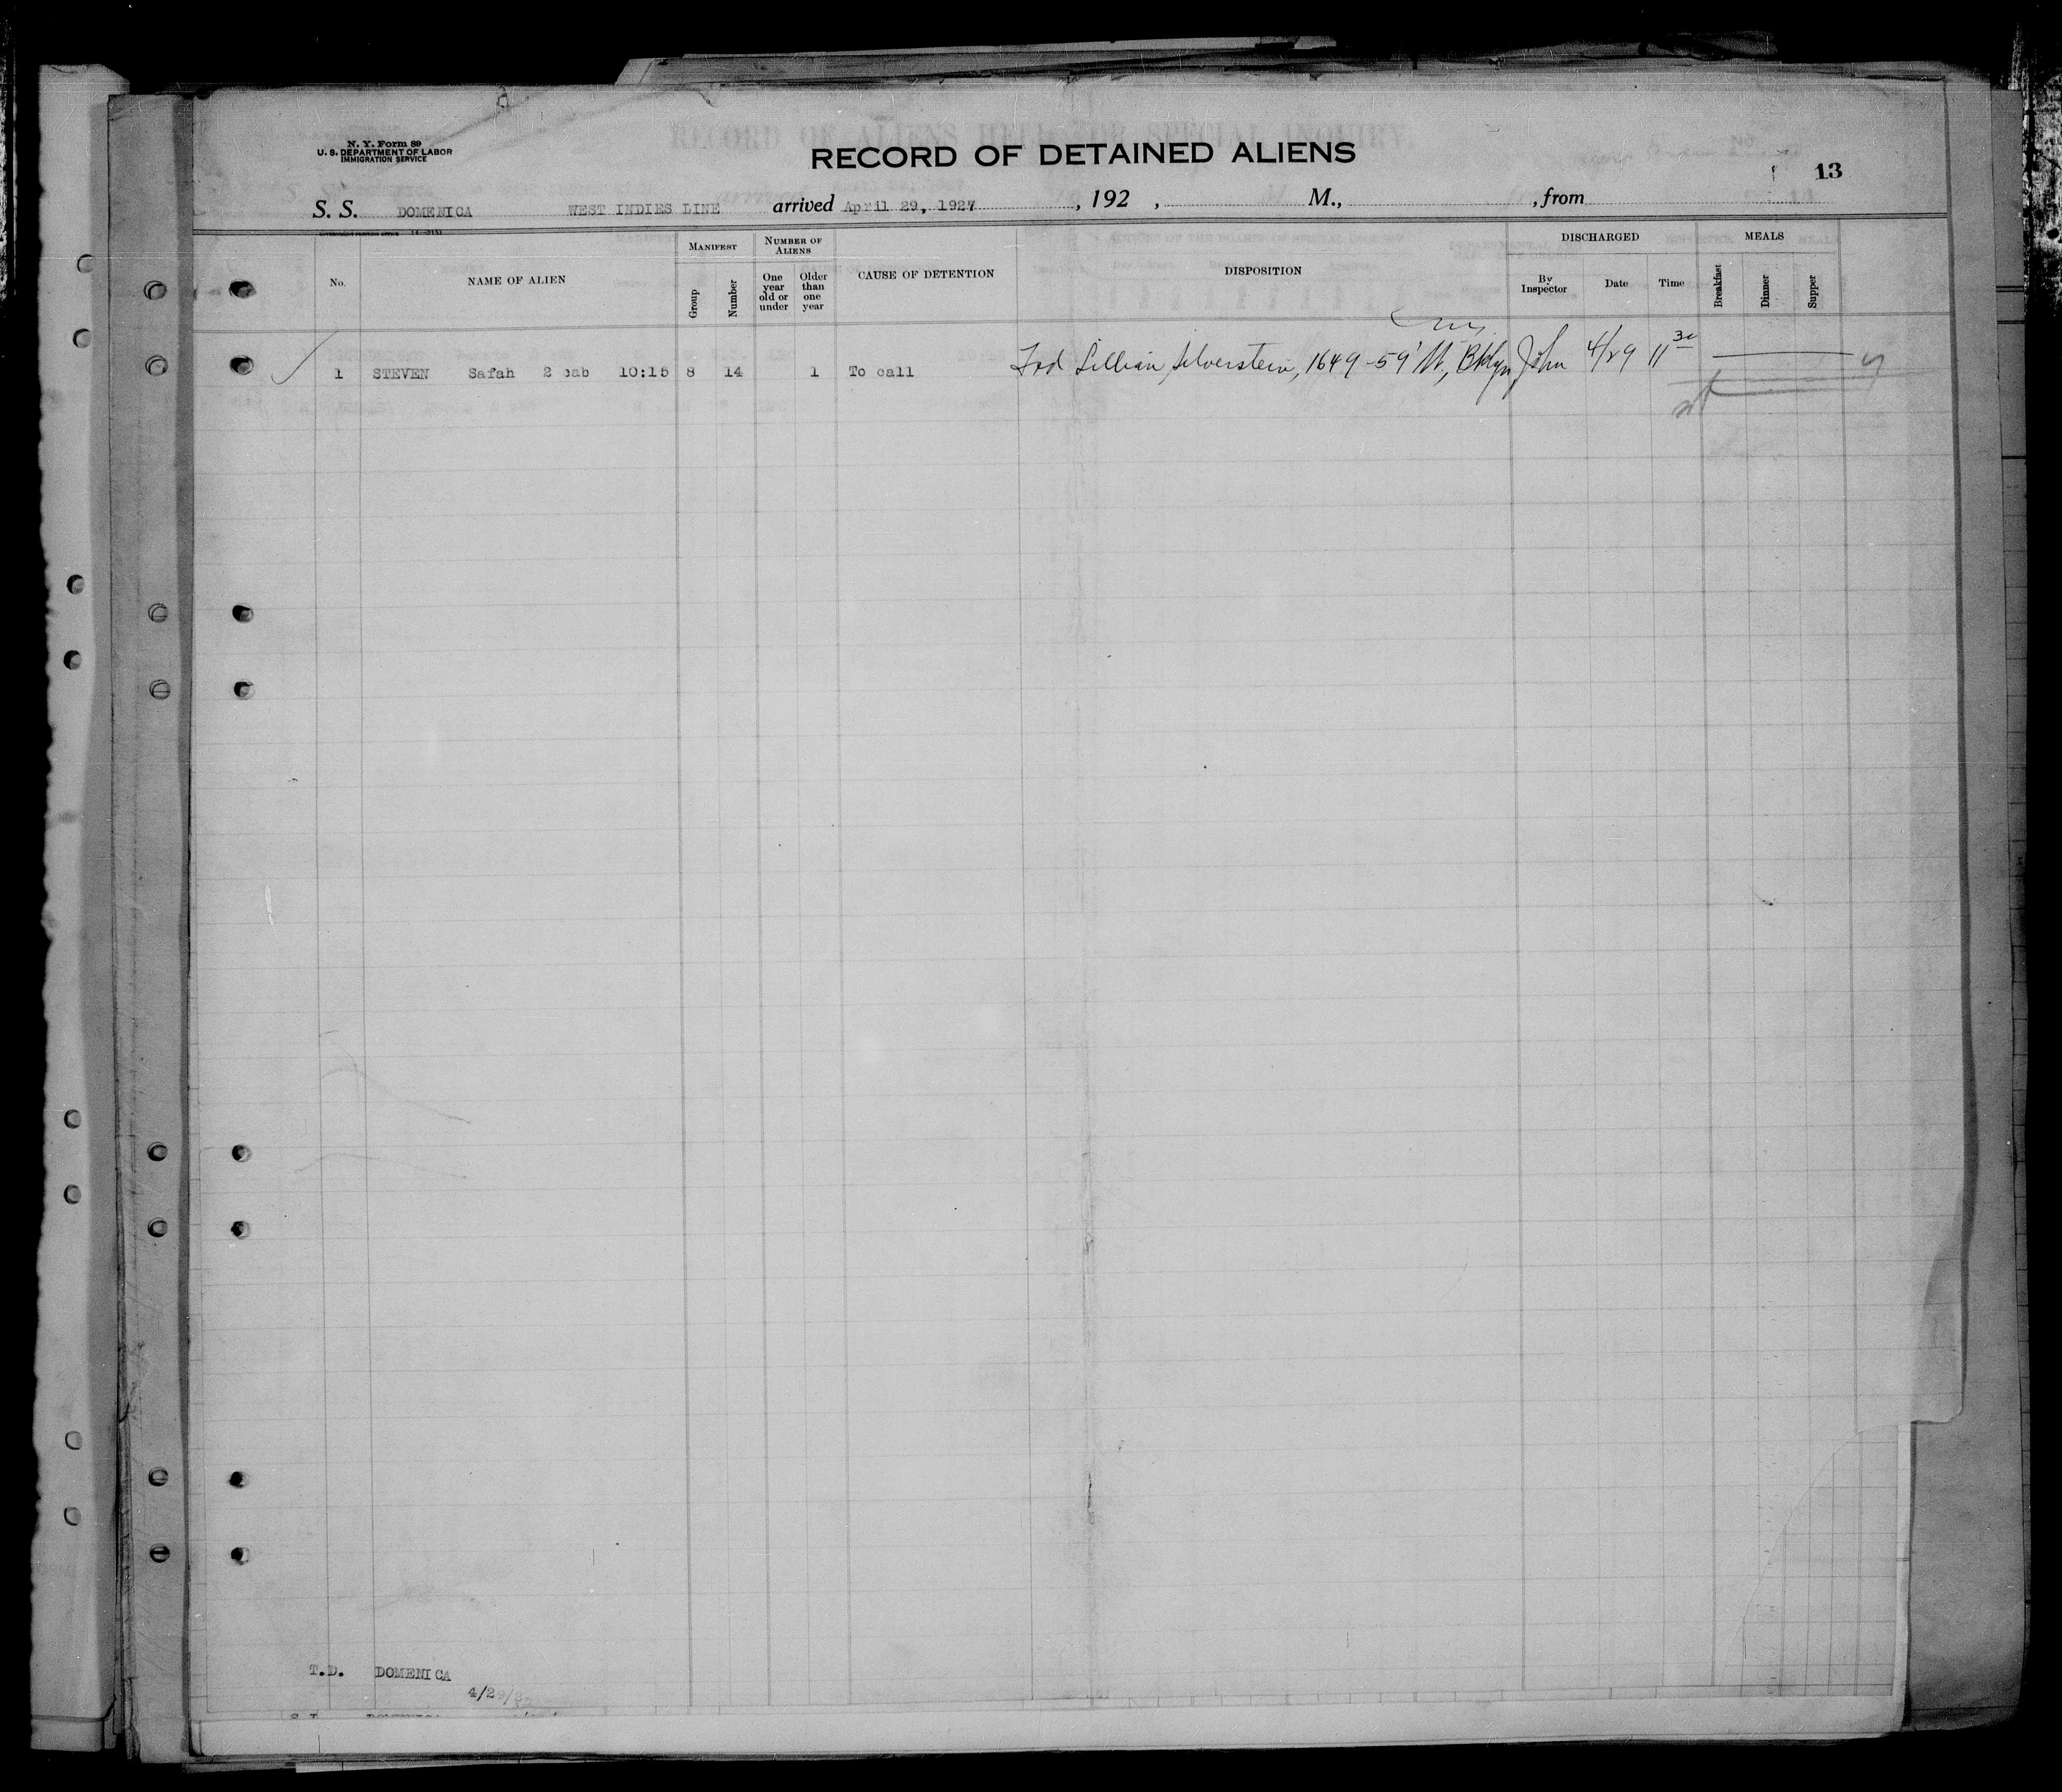 N. Y. Form 89
U. S. DEPARTMENT OF LABOR
IMMIGRATION SERVICE
RECORD OF DETAINED ALIENS
13
S. S. DOMENICA WEST INDIES LINE arrived April 29, 1927, 192 , M., , from
No. NAME OF ALIEN MANIFEST Group Number NUMBER OF ALIENS One year old or under Older than one year CAUSE OF DETENTION DISPOSITION DISCHARGED By Inspector Date Time MEALS Breakfast Dinner Supper
1 STEVEN Safah 2 cab 10:15 8 14 1 To call Lillian Silverstein, 1649-59' St, Bklyn John 4/29 11 30
T.D. DOMENICA
4/29/27